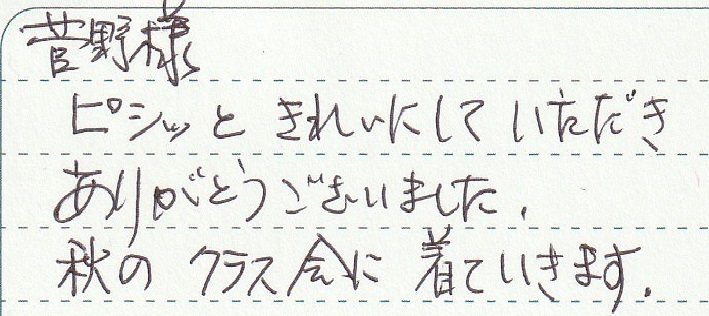 菅野様
ピシッときれいにしていただき
ありがとうございました.
秋のクラス会に着ていきます.